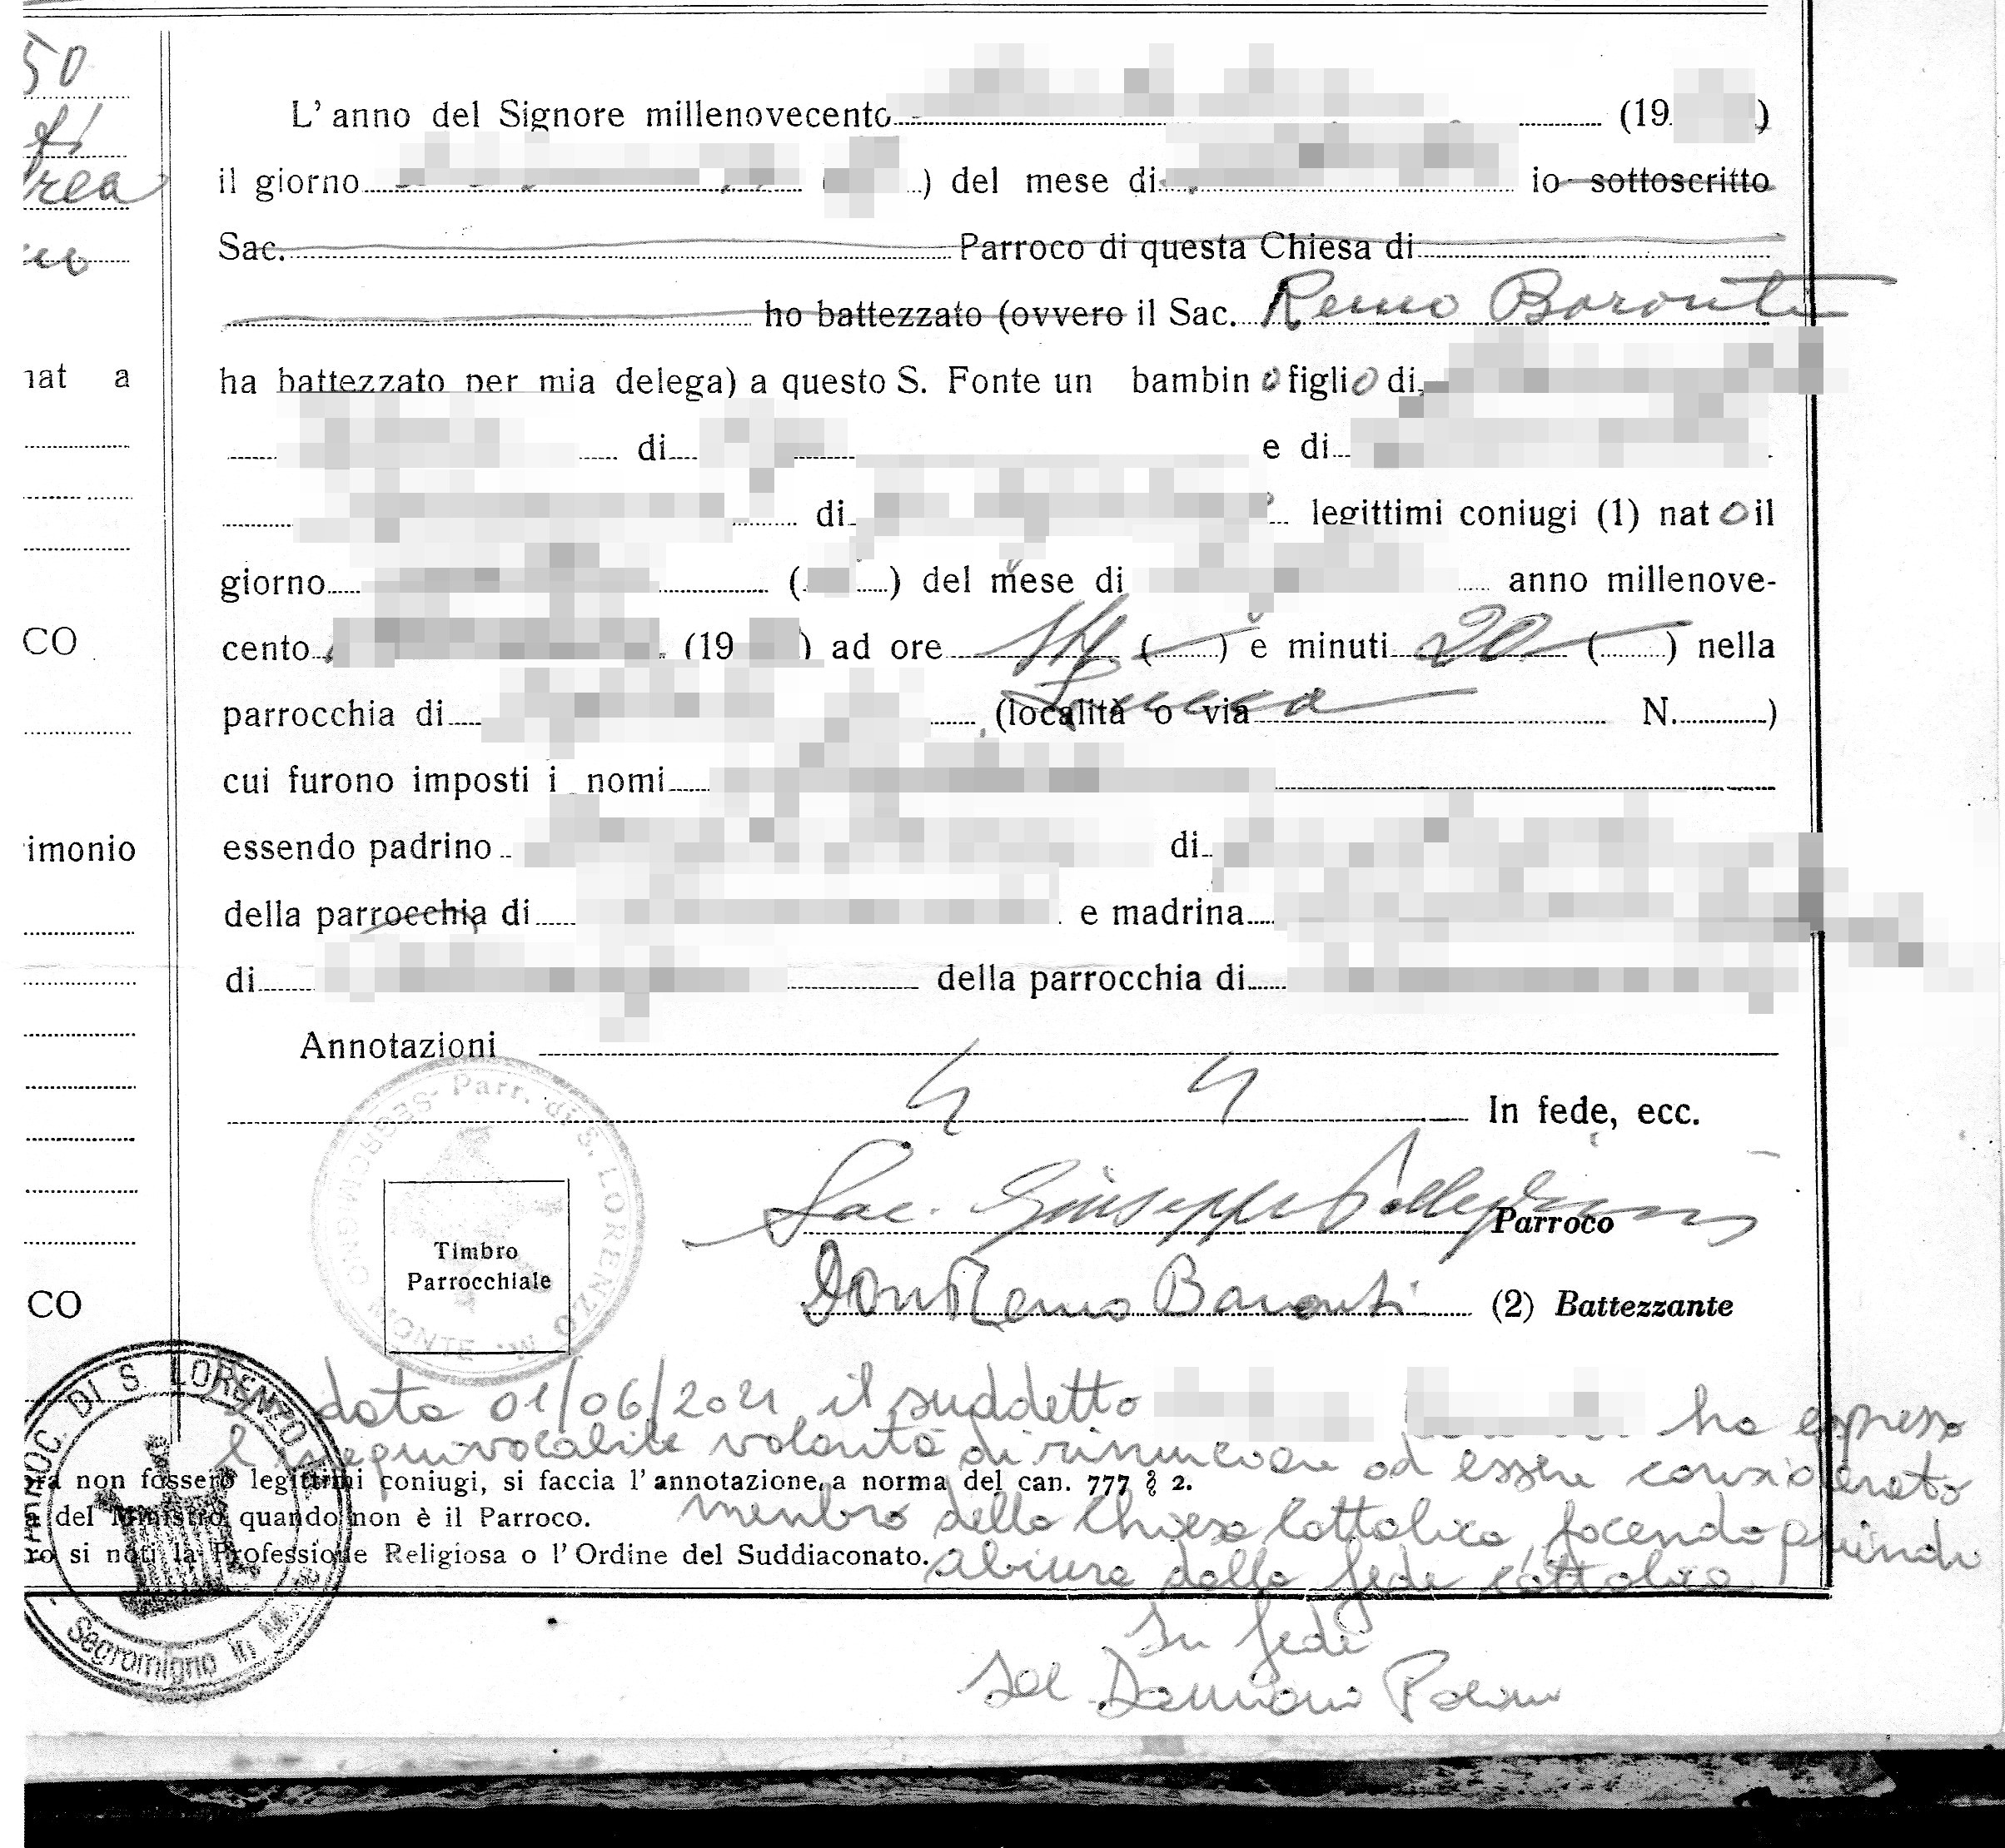 50
rea
nat a
CO
rimonio
CO
L' anno del Signore millenovecento (19 )
il giorno ( ) del mese di io sottoscritto
Sac. Parroco di questa Chiesa di
ho battezzato (ovvero il Sac. Remo Baronti
ha battezzato per mia delega) a questo S. Fonte un bambin o figli o di
di e di
di legittimi coniugi (1) nat o il
giorno ( ) del mese di anno millenove-
cento (19 ) ad ore 14 ( ) e minuti 20 ( ) nella
parrocchia di (località o via Lucca N. )
cui furono imposti i nomi
essendo padrino di
della parrocchia di e madrina
di della parrocchia di
Annotazioni
In fede, ecc.
Sac. Giuseppe Pellegrini Parroco
Don Remo Baronti (2) Battezzante
Parr. di S. LORENZO M. SEGROMIGNO MONTE
Timbro
Parrocchiale
data 01/06/2021 il suddetto ha espresso
l'inequivocabile volontà di rinunciare ad essere considerato
membro della Chiesa Cattolica, facendo quindi
abiura della fede cattolica
In fede
Damiano
non fossero legittimi coniugi, si faccia l'annotazione a norma del can. 777 § 2.
del Ministro quando non è il Parroco.
si noti la Professione Religiosa o l'Ordine del Suddiaconato.
PARROC. DI S. LORENZO
Segromigno in M.